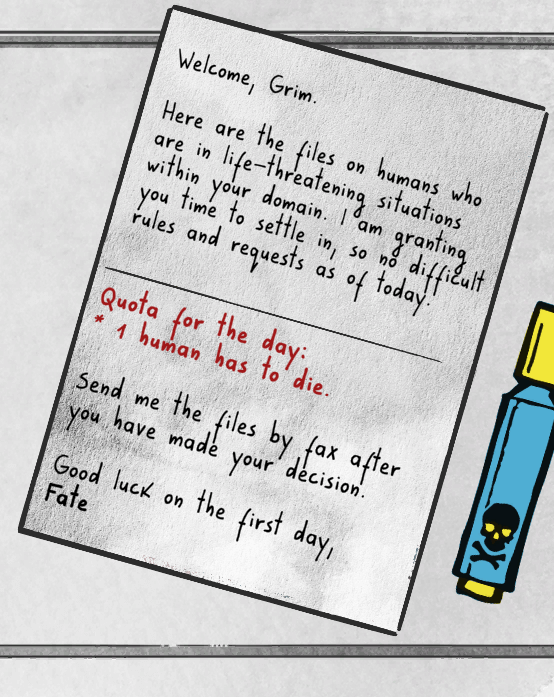 Welcome, Grim.
Here are the files on humans who
are in life-threatening situations
within your domain. I am granting
you time to settle in, so no difficult
rules and requests as of today.
Quota for the day:
* 1 human has to die.
Send me the files by fax after
you have made your decision.
Good luck on the first day,
Fate